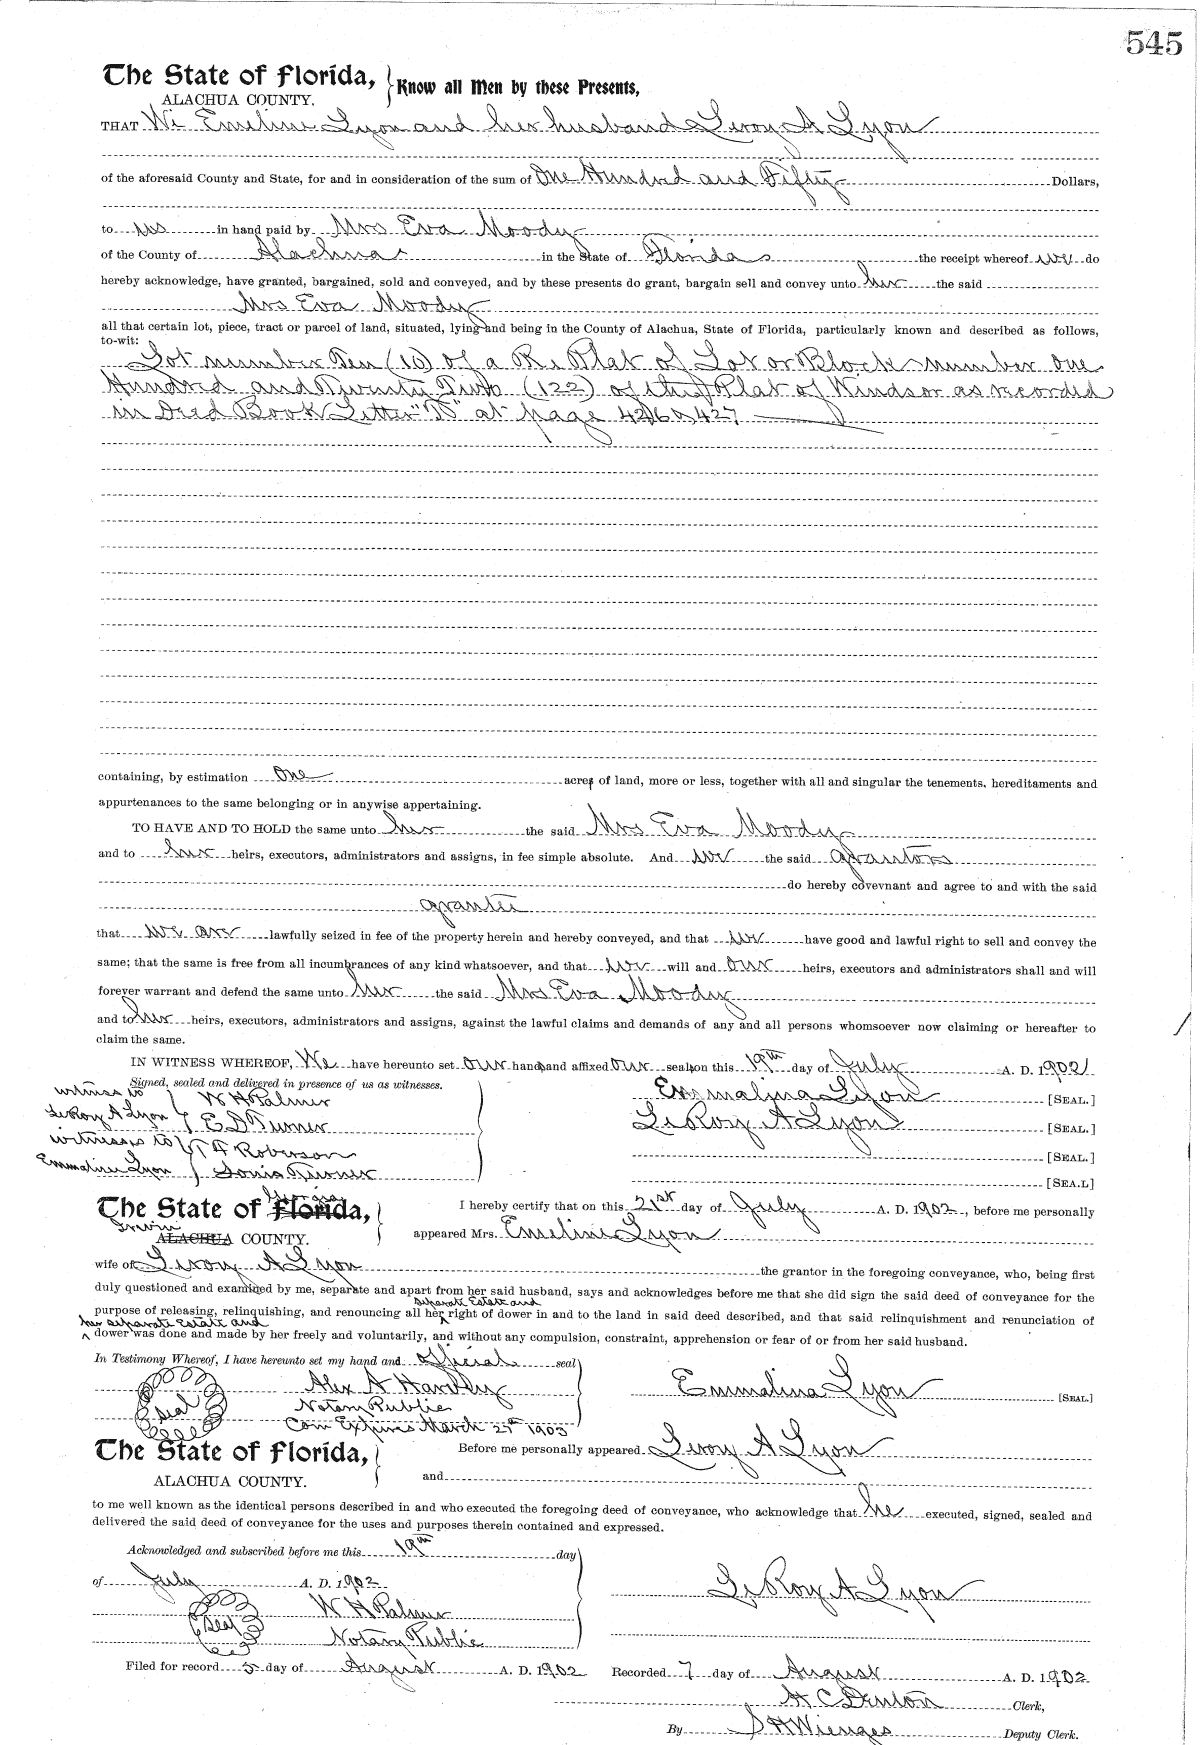 545
The State of Florida, } Know all Men by these Presents,
ALACHUA COUNTY.
THAT We Emeline Lyon and her husband Leroy A Lyon
of the aforesaid County and State, for and in consideration of the sum of One Hundred and Fifty Dollars,
to us in hand paid by Mrs Eva Moody
of the County of Alachua in the State of Florida the receipt whereof we do
hereby acknowledge, have granted, bargained, sold and conveyed, and by these presents do grant, bargain sell and convey unto her the said
Mrs Eva Moody
all that certain lot, piece, tract or parcel of land, situated, lying and being in the County of Alachua, State of Florida, particularly known and described as follows,
to-wit:
Lot number Ten (10) of a Re Plat of Lot or Block number One
Hundred and Twenty Two (122) of the Plat of Windsor as recorded
in Deed Book Letter "T" at page 426 & 427
containing, by estimation One acres of land, more or less, together with all and singular the tenements, hereditaments and
appurtenances to the same belonging or in anywise appertaining.
TO HAVE AND TO HOLD the same unto her the said Mrs Eva Moody
and to her heirs, executors, administrators and assigns, in fee simple absolute. And we the said grantors
do hereby covevnant and agree to and with the said
grantee
that we are lawfully seized in fee of the property herein and hereby conveyed, and that we have good and lawful right to sell and convey the
same; that the same is free from all incumbrances of any kind whatsoever, and that we will and our heirs, executors and administrators shall and will
forever warrant and defend the same unto her the said Mrs Eva Moody
and to her heirs, executors, administrators and assigns, against the lawful claims and demands of any and all persons whomsoever now claiming or hereafter to
claim the same.
IN WITNESS WHEREOF, We have hereunto set our hands and affixed our seals on this 19th day of July A. D. 1902
Signed, sealed and delivered in presence of us as witnesses.
witness to } W H Palmer Emmalina Lyon [SEAL.]
LeRoy A Lyon } E D Turner LeRoy A Lyon [SEAL.]
witness to } T A Roberson [SEAL.]
Emmaline Lyon } Turner [SEA.L]
The State of Florida, Georgia } I hereby certify that on this 21st day of July A. D. 1902, before me personally
Irwin
ALACHUA COUNTY. appeared Mrs. Emeline Lyon
wife of Leroy A Lyon the grantor in the foregoing conveyance, who, being first
duly questioned and examined by me, separate and apart from her said husband, says and acknowledges before me that she did sign the said deed of conveyance for the
separate Estate and
purpose of releasing, relinquishing, and renouncing all her right of dower in and to the land in said deed described, and that said relinquishment and renunciation of
her separate Estate and
dower was done and made by her freely and voluntarily, and without any compulsion, constraint, apprehension or fear of or from her said husband.
In Testimony Whereof, I have hereunto set my hand and official seal
Seal Alex A Emmalina Lyon [SEAL.]
Notary Public
Com Expires March 27th 1903
The State of Florida, } Before me personally appeared Leroy A Lyon
ALACHUA COUNTY. and
to me well known as the identical persons described in and who executed the foregoing deed of conveyance, who acknowledge that he executed, signed, sealed and
delivered the said deed of conveyance for the uses and purposes therein contained and expressed.
Acknowledged and subscribed before me this 19th day
of July A. D. 1902 LeRoy A Lyon
Seal W H Palmer
Notary Public
Filed for record 5 day of August A. D. 1902 Recorded 7 day of August A. D. 1902
H C Denton Clerk,
By S H Wienges Deputy Clerk.